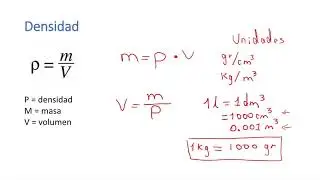 Densidad
ρ = m/V
P = densidad
M = masa
V = volumen
m = ρ · V
V = m/ρ
Unidades
gr/cm³
kg/m³
1l = 1dm³
= 1000 cm³ ←
0.001 m³ ←
1kg = 1000 gr